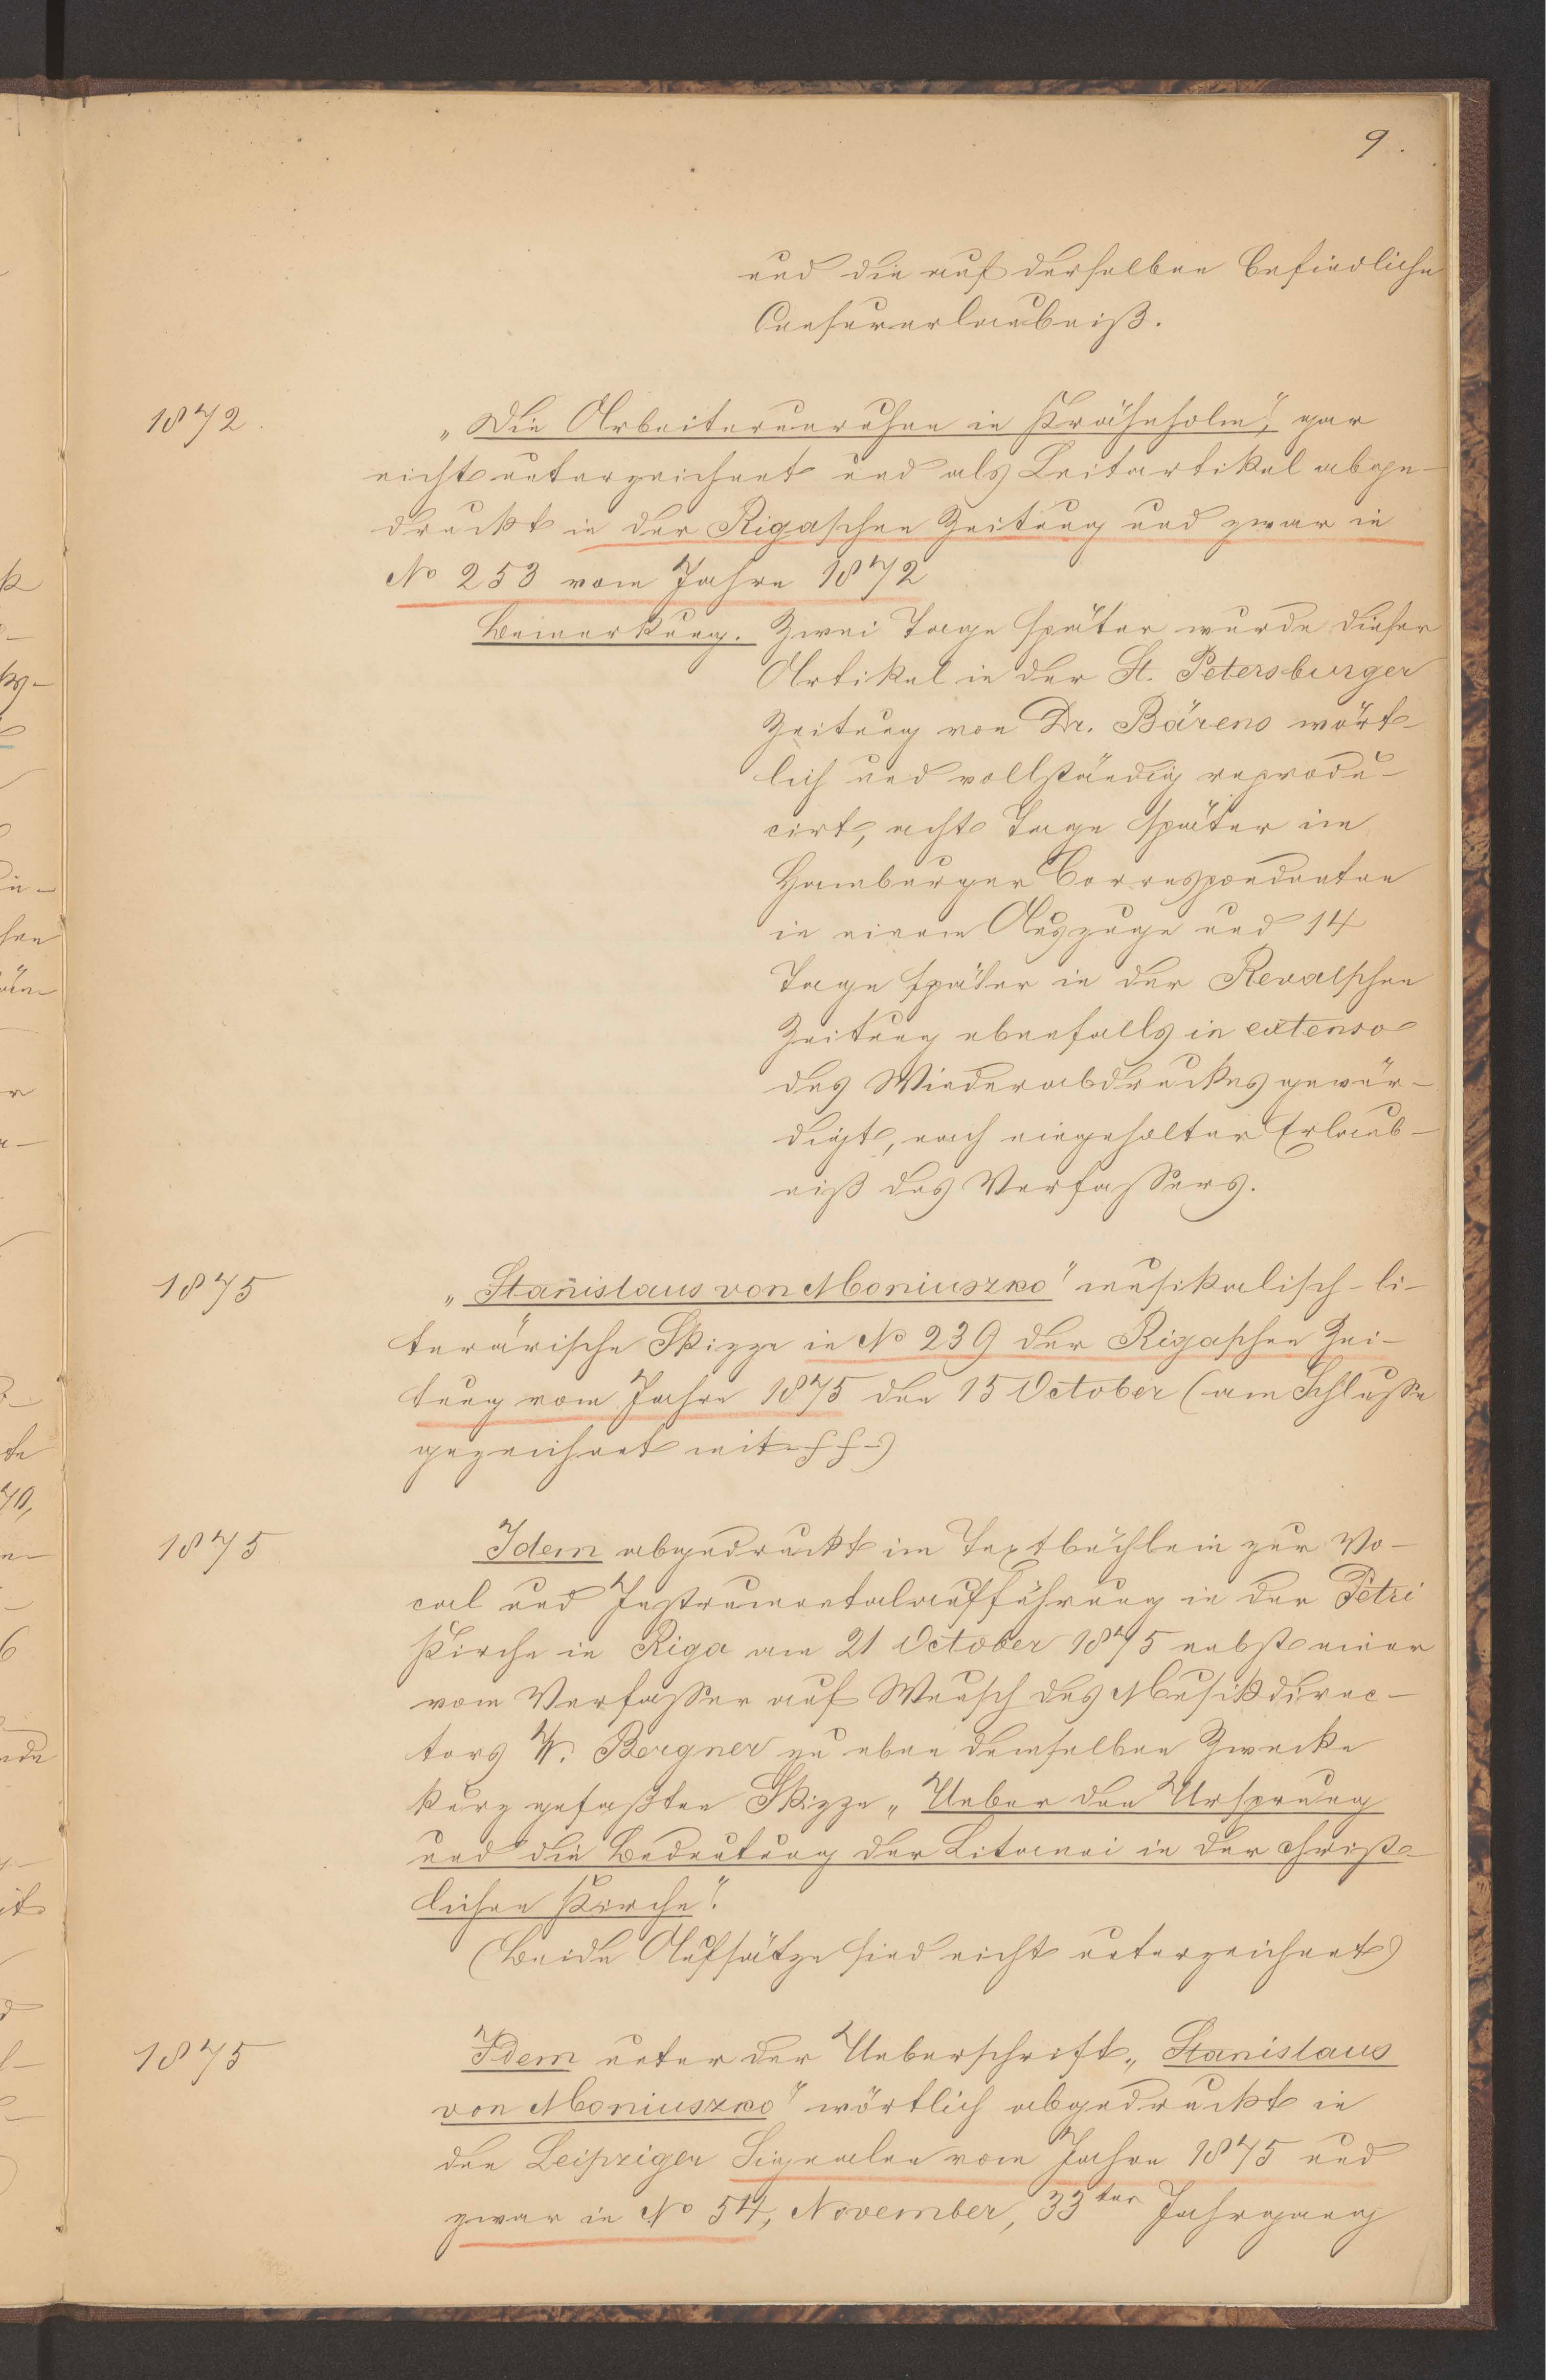 9.
und die auf derselben befindliche
Censurerlaubniß.
1872. „Die Arbeiterunruhen in Krähnholm", gar
nicht unterzeichnet und als Leitartikel abge-
druckt in der Rigaschen Zeitung und zwar in
No 253 vom Jahre 1872
Bemerkung. Zwei Tage später wurde dieser
Artikel in der St. Petersburger
Zeitung von Dr. Bärens wört-
lich und vollständig reprodu-
cirt, acht Tage später im
Hamburger Correspondenten
in einem Auszuge und 14
Tage später in der Revalschen
Zeitung ebenfalls in extenso
des Wiederabdruckes gewür-
digt, nach eingeholter Erlaub-
niß des Verfassers.
1875 „Stanislaus von Moniuszko" musikalisch-li-
terärische Skizze in No 239 der Rigaschen Zei-
tung vom Jahre 1875 den 15 October (am Schlusse
gezeichnet mit -ff-)
1875 Idem abgedruckt im Textbüchlein zur Vo-
cal und Instrumentalaufführung in der Petri
Kirche in Riga am 21 October 1875 nebst einer
vom Verfasser auf Wunsch des Musikdirec-
tors W. Bergner zu eben demselben Zwecke
kurz gefaßten Skizze „Ueber den Ursprung
und die Bedeutung der Litanei in der christ-
lichen Kirche".
(Beide Aufsätze sind nicht unterzeichnet)
1875 Idem unter der Ueberschrift „Stanislaus
von Moniuszko" wörtlich abgedruckt in
den Leipziger Signalen vom Jahre 1875 und
zwar in No 54, November, 33ter Jahrgang